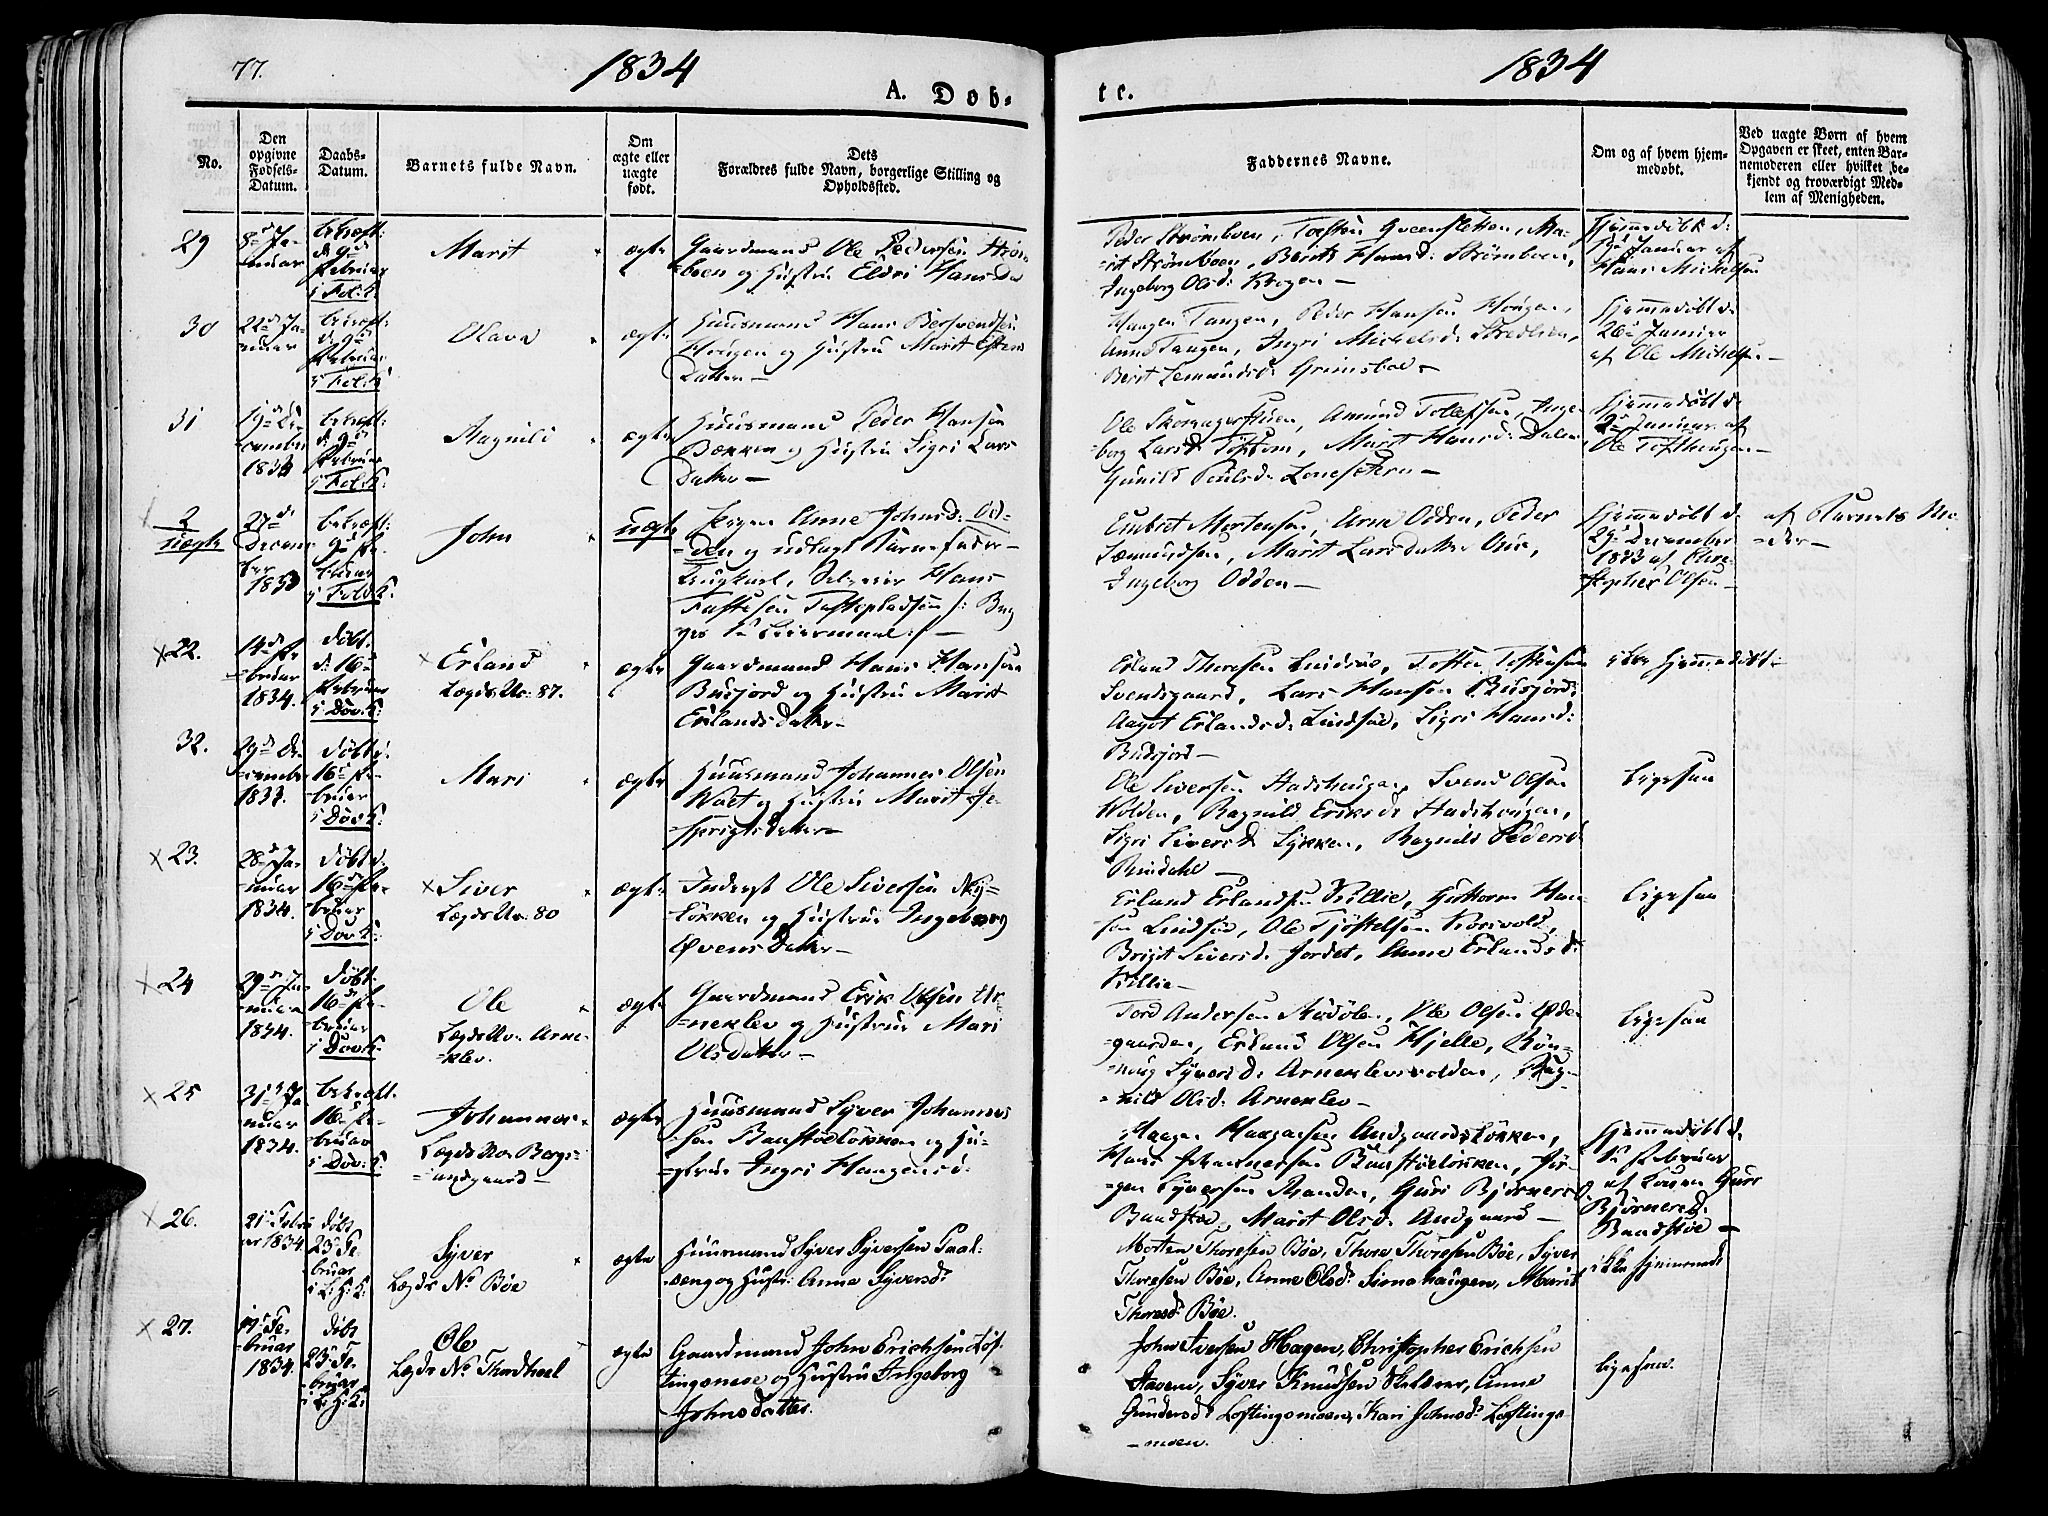 77.
1834
1834
A. Döb-
te.
No.
Den
opgivne
Fødsels-
Datum.
Daabs-
Datum.
Barnets fulde Navn.
Om
ægte eller
uægte
født.
Dets
Forældres fulde Navn, borgerlige Stilling og
Opholdssted.
Faddernes Navne.
Om og af hvem hjem-
medøbt.
Ved uægte Børn af hvem
Opgaven er skeet, enten Bar-
nemoderen eller hvilket be-
kjendt og troværdigt Med-
lem af Menigheden.
29
8de Ja-
nuar
bekræft:
d: 9de
Februar
i Fol: K:
Marit
ægte
Gaardmand Ole Pedersen Strøm
boen og Hustru Eldri Hansda
Peder Strømboen, Torsten Qveensletten, Ma-
rit Strømboen, Berit Hansd: Strømboen,
Ingeborg Olsd: Krogen
Hjemmedøbt d:
Januar af
Hans Michelsen
30
22de Ja-
nuar
bekræft:
d: 9de
Februar
i Fol: K:
Olava
ægte
Huusmand Hans
Hougen og Hustru Marit Estens
Datter
Haagen Tangen, Peder Hansen Hougen,
Anne Tangen, Ingri Michelsd:
Berit Semundsd: Grimsboe
Hjemmedøbt d:
26de Januar
af Ole Michels.
31
19de De-
cember
1833
bekræft:
d: 9de
Februar
i Fol: K:
Ragnild
ægte
Huusmand Peder Hansen
Bækken og Hustru Sigri Lars
Datter
Ole Skomagerstuen, Amund Tolefsen, Inge-
borg Larsd: Toftom, Marit Hansd: Dalen,
Gunild Paulsd:
Hjemmedøbt d:
2den Januar af
Ole Tofthaugen
2
uægte
27de
Decem-
ber
1833
bekræft:
9de Fe-
bruar
i Fol: K:
John
uægte
Pigen Anne Johnsd: Od-
den og udlagt Barnefader
Ungkarl, Selveier Hans
Tostesen Tostepladsen /: Beg-
ges 1ste Leiermaal :/
Embret Mortensen, Arne Odden, Peder
Sæmundsen, Marit Larsdatter
Ingeborg Odden
Hjemmedøbt d:
29de December
1833 af Chri-
stopher Olsen
af Barnets Mo-
der
× 22.
14de Fe-
bruar
1834.
døbt
d: 16de
Februar
i Dov: K:
× Erland
Lægds No: 87.
ægte
Gaardmand Hans Hansen
Budsjord og Hustru Marit
Erlands Datter
Erland Thoresen Lindsøe, Toster Tostensen
Svendsgaard, Lars Hansen Budsjord,
Aagot Erlandsd: Lindsøe, Sigri Hansd:
Budsjord
ikke Hjemmedøbt
32.
29de De-
cember
1833.
døbt d:
16de Fe-
bruar
i Dov: K:
Mari
ægte
Huusmand Johannes Olsen
og Hustru Marit
Datter
Ole Siversen Stadshaugen, Svend Olsen
Wolden, Ragnild Eriksd: Stadshaugen,
Sigri Siversd: Løkken, Ragnild Pedersd:
Rindahl
ligesaa
× 23.
28de Ja-
nuar
1834.
døbt d:
16de Fe-
bruar
i Dov: K:
× Siver
Lægds No: 80
ægte
Inderst Ole Siversen
løkken og Hustru Ingeborg
Datter
Erland Erlandsen Killie, Guttorm Han-
sen Lindsøe, Ole Tjøstelsen
Brigit Siversd: Jordet, Anne Erlandsd:
Killie
ligesaa
× 24
29de Ja-
nuar
1834.
døbt
16de Fe-
bruar
i Dov: K:
Ole
Lægds No: Arne-
klev.
ægte
Gaardmand Erik Olsen Ar-
neklev og Hustru Mari
Ols Datter
Tord Andersen Ole Olsen Ødde-
gaarden, Erland Olsen Hjelle, Røn-
naug Syversd: Arneklevsvolden, Rag-
nild Olsd: Arneklev
ligesaa
× 25
31te Ja-
nuar
1834.
bekræft:
16de Fe-
bruar
i Dov: K:
Johannes
Lægds No: Bergs-
undgaard
ægte
Huusmand Syver Johannes-
sen Baustøeløkken og Hu-
stru Ingri Haagensd:
Haagen Haagensen Andgaardsløkken,
Hans Johannessen Baustøeløkken, Jør-
gen Syversen Randen, Guri Bjørnersd:
Baustøe, Marit Olsd: Andgaard
Hjemmedøbt d:
1ste Februar
af Guri
Bjørnersd:
Baustøe
× 26.
21de Febru
ar 1834
døbt
23de Fe-
bruar
i L: H: K:
Syver
Lægds No Bøe
ægte
Huusmand Syver Syversen Paal-
seng og Hustr: Anne Syversd:
Morten Thoresen Bøe, Thore Thoresen Bøe, Syver
Thoresen Bøe, Anne Olsd: Simehaugen, Marit
Thoresd: Bøe.
ikke hjemmed:
× 27.
17de Fe-
bruar
1834
døbt
23de Fe-
bruar
i L: H: K:
Ole
Lægds No Thordhoel
ægte
Gaardmand John Erichsen Løf-
tingsmoe og Hustru Ingeborg
Johnsdatter.
John Iversen Hagen, Christopher Erichsen
Stavem, Syver Knudsen Anne
Gundersd: Løftingsmoen, Kari Johnsd: Løftings-
moen.
ligesaa.